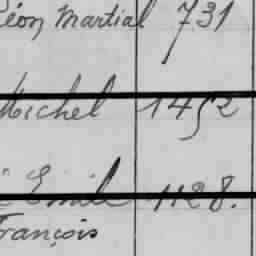 Léon Martial 731
Michel 1452
Emile 1128.
François